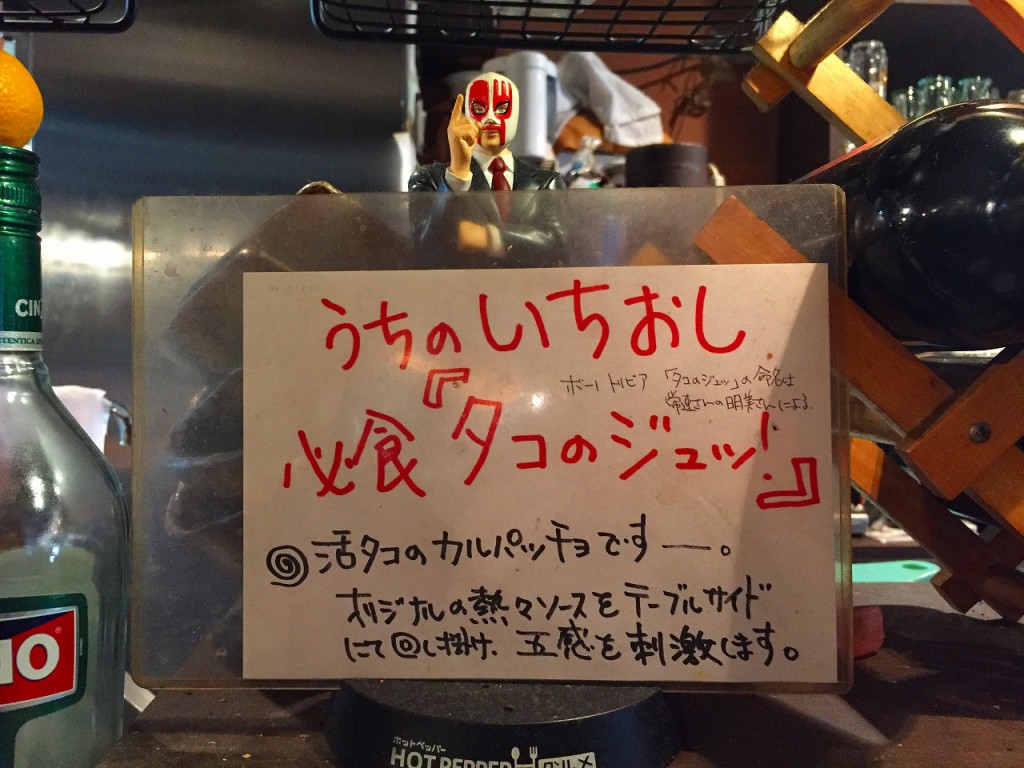 うちのいちおし
ボーノトリビア 「タコのジュッ」の命名は
常連さんの明美さんによる。
必食『タコのジュッ!』
活タコのカルパッチョです―。
オリジナルの熱々ソースをテーブルサイド
にて回し掛け、五感を刺激します。
CIN
ホットペッパー
HOT PEPPER グルメ